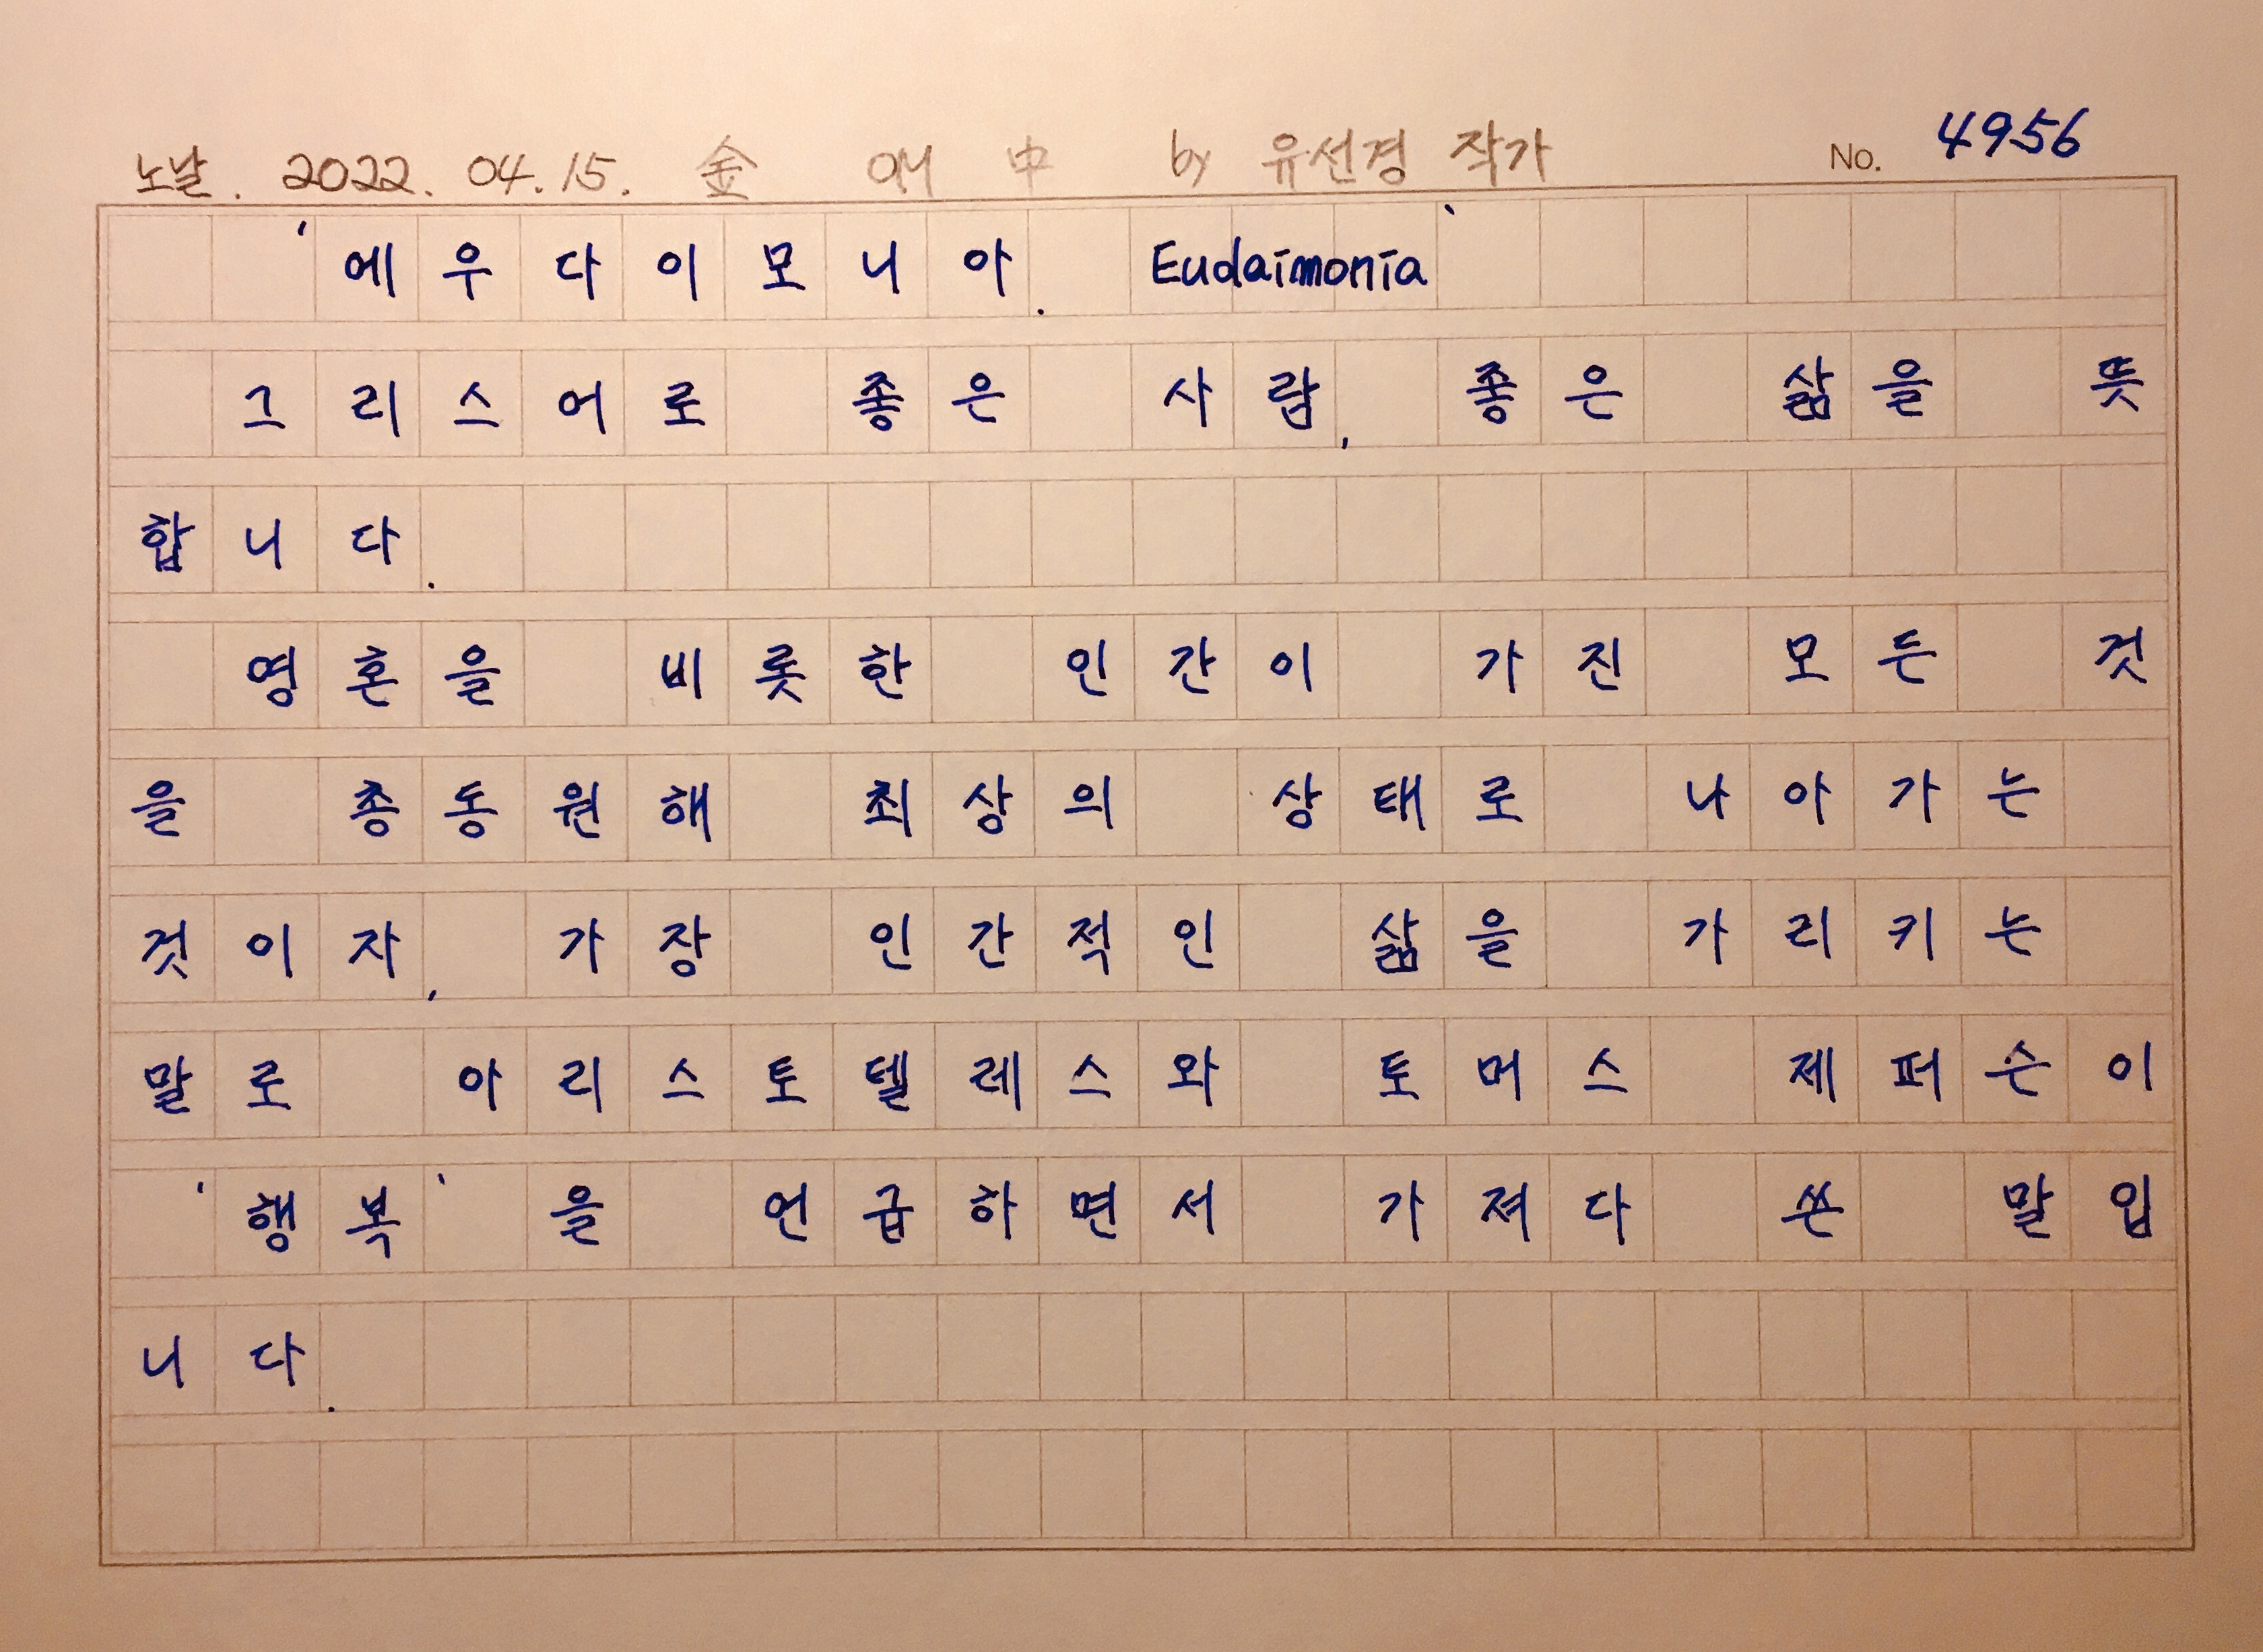 노날. 2022. 04. 15. 金 애 中 by 유선경 작가 No. 4956
'에우다이모니아. Eudaimonia'
그리스어로 좋은 사람, 좋은 삶을 뜻
합니다.
영혼을 비롯한 인간이 가진 모든 것
을 총동원해 최상의 상태로 나아가는
것이자, 가장 인간적인 삶을 가리키는
말로 아리스토텔레스와 토머스 제퍼슨이
'행복'을 언급하면서 가져다 쓴 말입
니다.